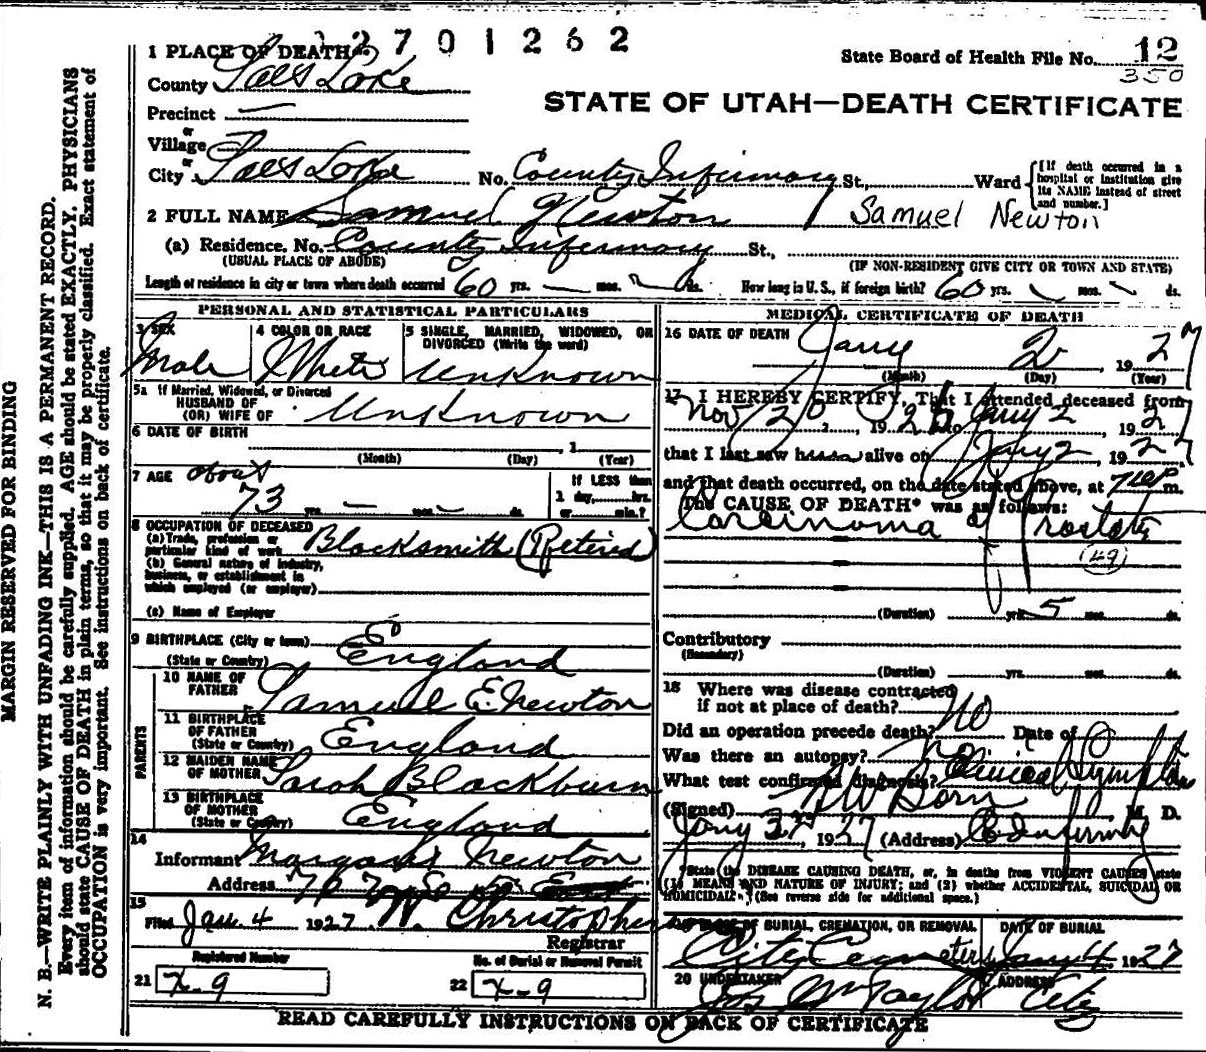 2701262
1 PLACE OF DEATH
State Board of Health File No. 12
350
County Salt Lake
STATE OF UTAH—DEATH CERTIFICATE
Precinct —
or
Village
or
City Salt Lake No. County Infirmary St., Ward
[If death occurred in a hospital or institution give its NAME instead of street and number.]
2 FULL NAME Samuel Newton Samuel Newton
(a) Residence. No. County Infirmary St.,
(USUAL PLACE OF ABODE) (IF NON-RESIDENT GIVE CITY OR TOWN AND STATE)
Length of residence in city or town where death occurred 60 yrs. — mos. — ds. How long in U. S., if foreign birth? 60 yrs. — mos. — ds.
PERSONAL AND STATISTICAL PARTICULARS
3 SEX 4 COLOR OR RACE 5 SINGLE, MARRIED, WIDOWED, OR DIVORCED (Write the word)
Male White Unknown
5a If Married, Widowed, or Divorced
HUSBAND OF
(OR) WIFE OF Unknown
6 DATE OF BIRTH
, 1
(Month) (Day) (Year)
7 AGE about
73 yrs. — mos. — ds.
If LESS than
1 day, hrs.
or min.?
8 OCCUPATION OF DECEASED
(a) Trade, profession or
particular kind of work Blacksmith (Retired)
(b) General nature of industry,
business, or establishment in
which employed (or employer)
(c) Name of Employer
9 BIRTHPLACE (City or town)
(State or Country) England
PARENTS
10 NAME OF
FATHER Samuel E. Newton
11 BIRTHPLACE
OF FATHER
(State or Country) England
12 MAIDEN NAME
OF MOTHER Sarah Blackburn
13 BIRTHPLACE
OF MOTHER
(State or Country) England
14
Informant Margaret Newton
Address
15
Filed Jan. 4 1927 Christopherson
Registrar
Registered Number No. of Burial or Removal Permit
21 X-9 22 X-9
MEDICAL CERTIFICATE OF DEATH
16 DATE OF DEATH
Jany 2 , 1927
(Month) (Day) (Year)
17 I HEREBY CERTIFY, That I attended deceased from
Nov 20, 1926 to Jany 2, 1927
that I last saw him alive on Jany 2, 1927
and that death occurred, on the date stated above, at m.
The CAUSE OF DEATH* was as follows:
Carcinoma of Prostate
(49)
(Duration) yrs. 5 mos. ds.
Contributory
(Secondary)
(Duration) yrs. mos. ds.
18 Where was disease contracted
if not at place of death?
Did an operation precede death? No Date of
Was there an autopsy? No
What test confirmed diagnosis? Clinical Symptoms
(Signed) M. D.
Jany 3, 1927 (Address) Co Infirmary
*State the DISEASE CAUSING DEATH, or, in deaths from VIOLENT CAUSES state
(1) MEANS AND NATURE OF INJURY; and (2) whether ACCIDENTAL, SUICIDAL OR
HOMICIDAL. (See reverse side for additional space.)
19 PLACE OF BURIAL, CREMATION, OR REMOVAL DATE OF BURIAL
City Cemetery Jany 4, 1927
20 UNDERTAKER ADDRESS
Jos Wm Taylor City
READ CAREFULLY INSTRUCTIONS ON BACK OF CERTIFICATE
MARGIN RESERVED FOR BINDING
N. B.—WRITE PLAINLY WITH UNFADING INK—THIS IS A PERMANENT RECORD.
Every item of information should be carefully supplied. AGE should be stated EXACTLY. PHYSICIANS
should state CAUSE OF DEATH in plain terms, so that it may be properly classified. Exact statement of
OCCUPATION is very important. See instructions on back of certificate.